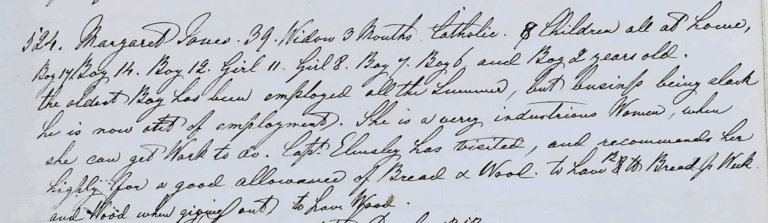 524. Margaret Jones. 39. Widow 3 Months Catholic. 8 Children all at home,
Boy 17, Boy 14. Boy 12. Girl 11. Girl 8. Boy 7. Boy 6, and Boy 2 years old.
the oldest Boy has been employed all the Summer, but business being slack
he is now out of employment. She is a very industrious Women, when
she can get Work to do. Capt. Elmsley has visited, and recommends her
highly for a good allowance of Bread & Wood. to have 12 Bread p Week.
and Wood when giving out to have Wood.